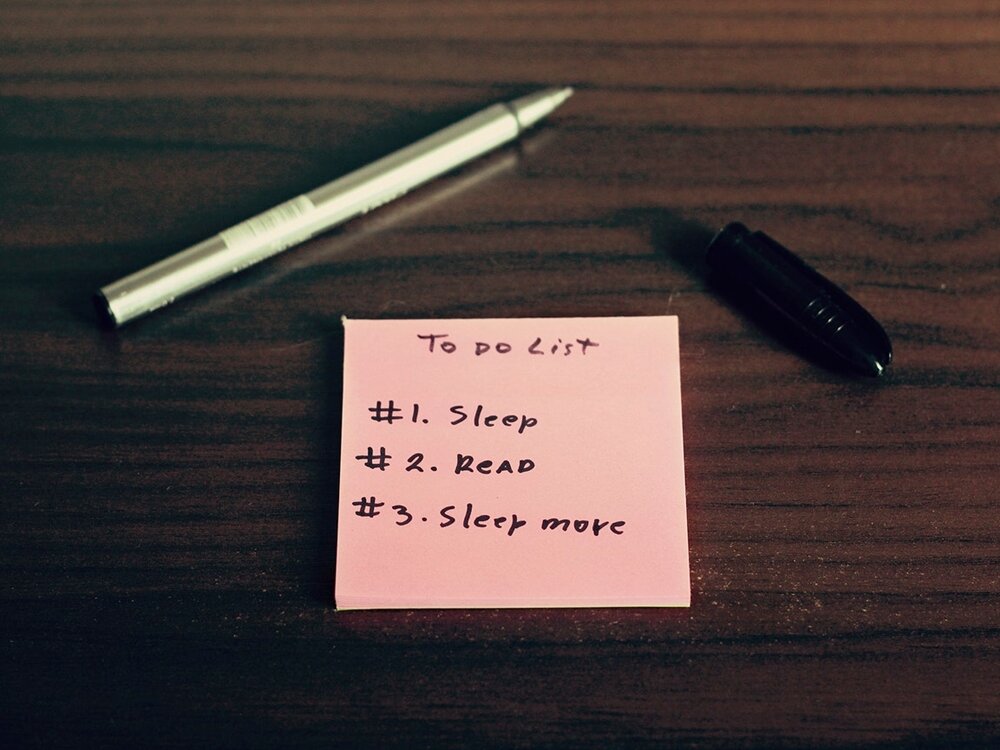 To Do List
#1. Sleep
#2. READ
#3. Sleep more